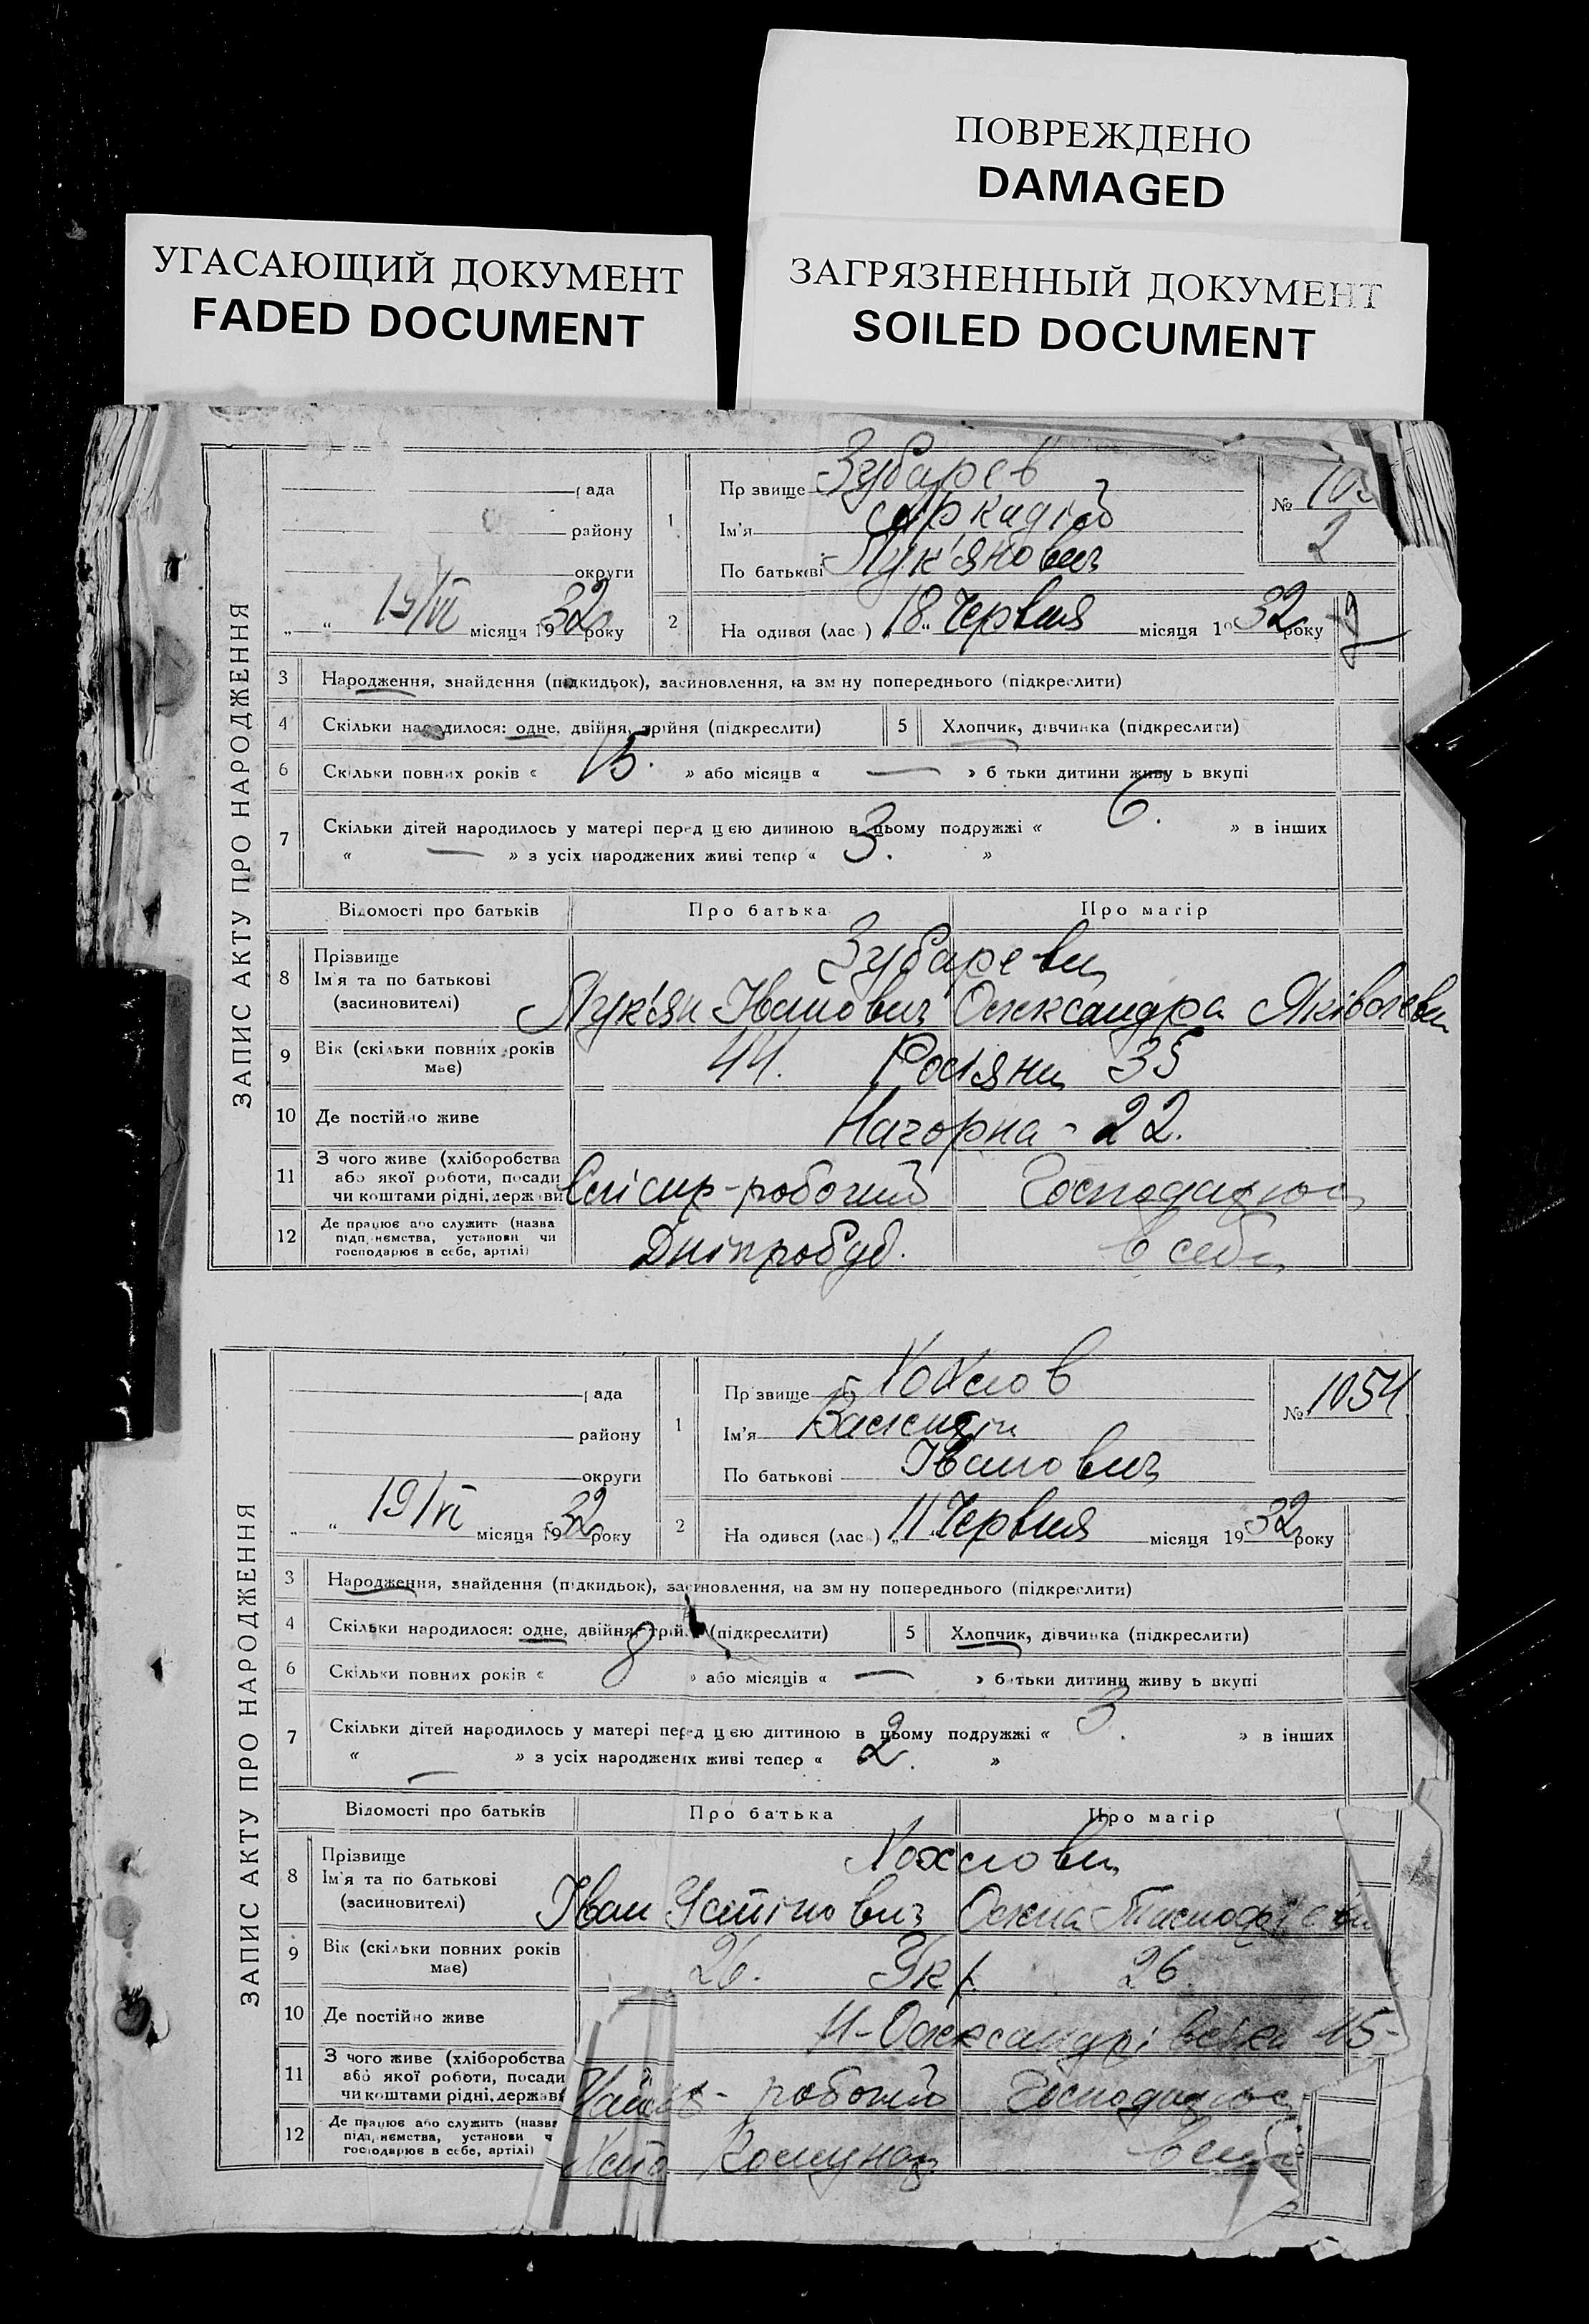 ПОВРЕЖДЕНО
DAMAGED
УГАСАЮЩИЙ ДОКУМЕНТ
FADED DOCUMENT
ЗАГРЯЗНЕННЫЙ ДОКУМЕНТ
SOILED DOCUMENT
ЗАПИС АКТУ ПРО НАРОДЖЕННЯ
ада
району
округи
„ “ 19/VI місяця 1932 року
1 Пр звище Зубарев
Ім'я Аркадій
По батькові Лук'янович
№ 105
2
2 На одився (лас ) 18 „ Червня місяця 19 32 року
3 Народження, знайдення (підкидьок), засиновлення, на зм ну попереднього (підкреслити)
4 Скільки народилося: одне, двійня, трійня (підкреслити)
5 Хлопчик, дівчинка (підкреслити)
6 Скільки повних років « 15. » або місяців « — » б тьки дитини живу ь вкупі
7 Скільки дітей народилось у матері перед цією дитиною в цьому подружжі « 6. » в інших
« — » з усіх народжених живі тепер « 3. »
Відомості про батьків Про батька Про матір
8 Прізвище
Ім'я та по батькові
(засиновителі)
Зубареви
Лук'ян Іванович Олександра Яківлевн
9 Вік (скільки повних років має) 44. Росіяни 35
10 Де постійно живе Нагорна - 22.
11 З чого живе (хліборобства
або якої роботи, посади
чи коштами рідні, держави
Слісир-робочий Господарює
12 Де працює або служить (назва
підп, немства, установи чи
господарює в себе, артілі)
Дніпробуд. в себе
ЗАПИС АКТУ ПРО НАРОДЖЕННЯ
ада
району
округи
„ “ 19/VI місяця 1932 року
1 Пр звище Хохлов
Ім'я Василій
По батькові Іванович
№ 1054
2 На одився (лас ) „ 11 Червня місяця 19 32 року
3 Народження, знайдення (підкидьок), засиновлення, на зм ну попереднього (підкреслити)
4 Скільки народилося: одне, двійня, трійня (підкреслити)
5 Хлопчик, дівчинка (підкреслити)
6 Скільки повних років « 8 » або місяців « — » батьки дитини живу ь вкупі
7 Скільки дітей народилось у матері перед цією дитиною в цьому подружжі « 3. » в інших
« — » з усіх народжених живі тепер « 2. »
Відомості про батьків Про батька Про матір
8 Прізвище
Ім'я та по батькові
(засиновителі)
Хохлови
Іван Устінович Олена
9 Вік (скільки повних років має) 26. Укр. 26.
10 Де постійно живе Н-Олександрівська 45-
11 З чого живе (хліборобства
або якої роботи, посади
чи коштами рідні, держав
робочий Господарює
12 Де працює або служить (назва
підп, немства, установи ч
господарює в себе, артілі)
Комунар в себе